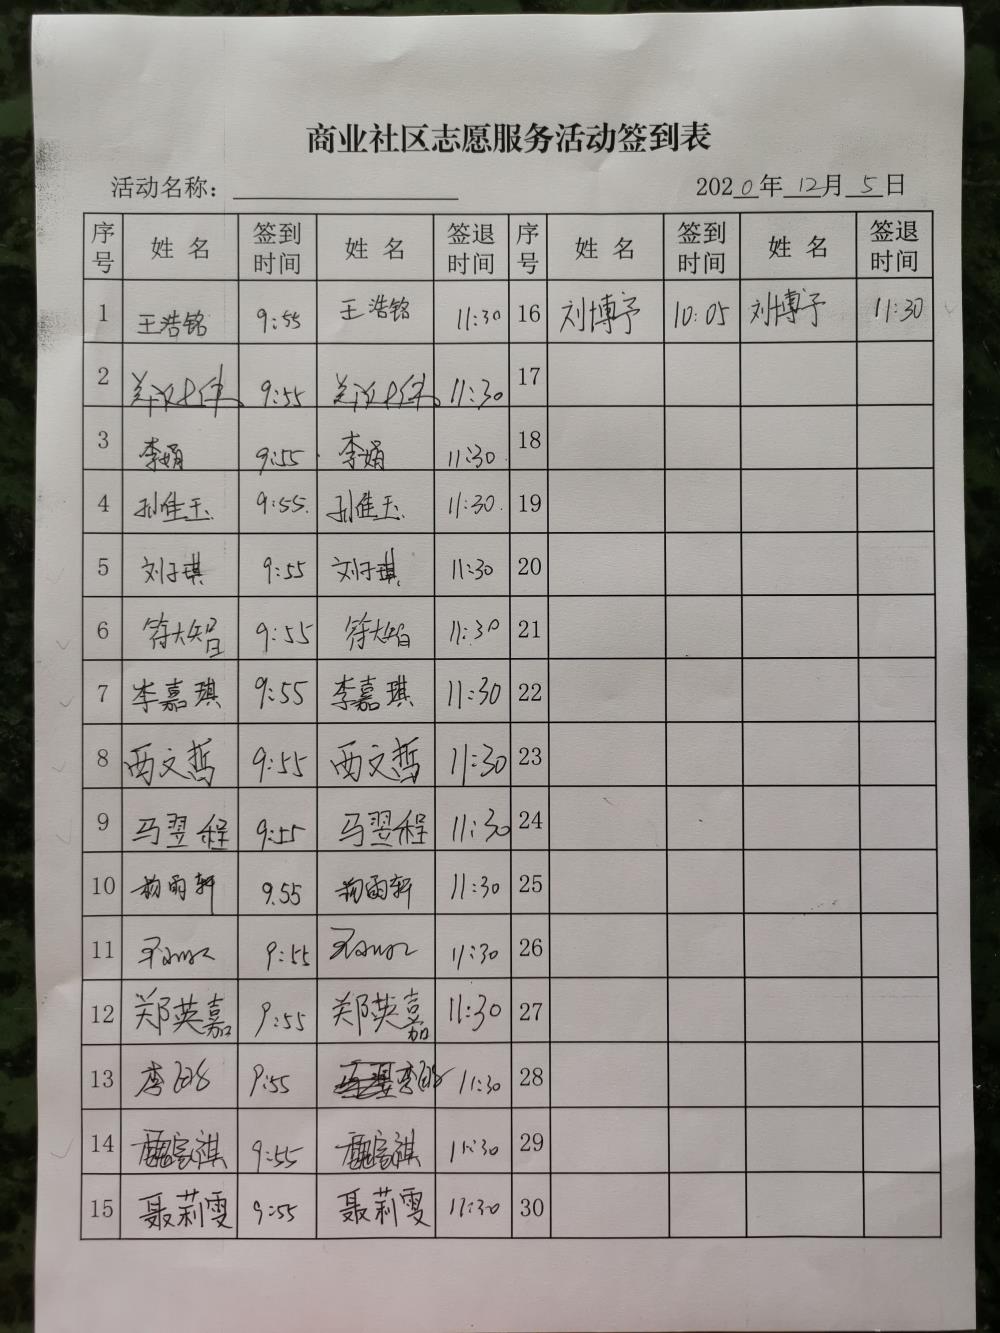 商业社区志愿服务活动签到表
活动名称： 2020年 12月 5日
序号 姓名 签到时间 姓名 签退时间 序号 姓名 签到时间 姓名 签退时间
1 王浩铭 9:55 王浩铭 11:30 16 刘博予 10:05 刘博予 11:30
2 9:55 11:30 17
3 李娟 9:55 李娟 11:30 18
4 孙佳玉 9:55 孙佳玉 11:30 19
5 刘子琪 9:55 刘子琪 11:30 20
6 符大智 9:55 符大 11:30 21
7 李嘉琪 9:55 李嘉琪 11:30 22
8 西文哲 9:55 西文哲 11:30 23
9 马翌程 9:55 马翌程 11:30 24
10 杨雨轩 9.55 杨雨轩 11:30 25
11 9:55 11:30 26
12 郑英嘉 9:55 郑英嘉 11:30 27
13 李 9:55 李 11:30 28
14 魏家祺 9:55 魏家祺 11:30 29
15 聂莉雯 9:55 聂莉雯 11:30 30